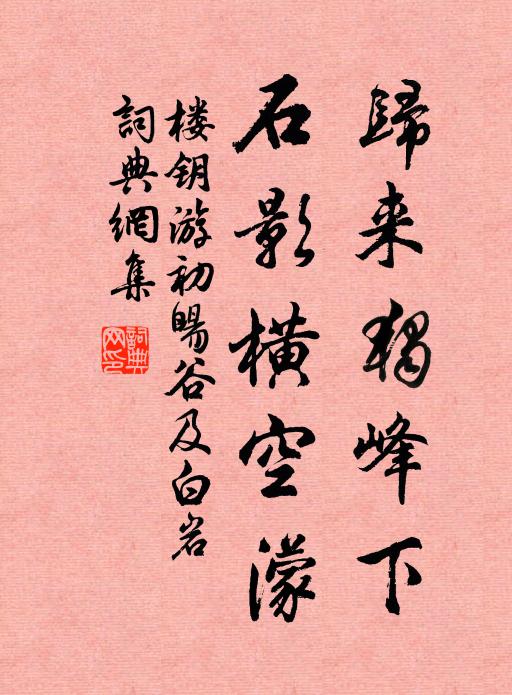 歸来獨峰下
石影橫空濛
楼钥游初暘谷及白岩
詞典網集
詞典
网印